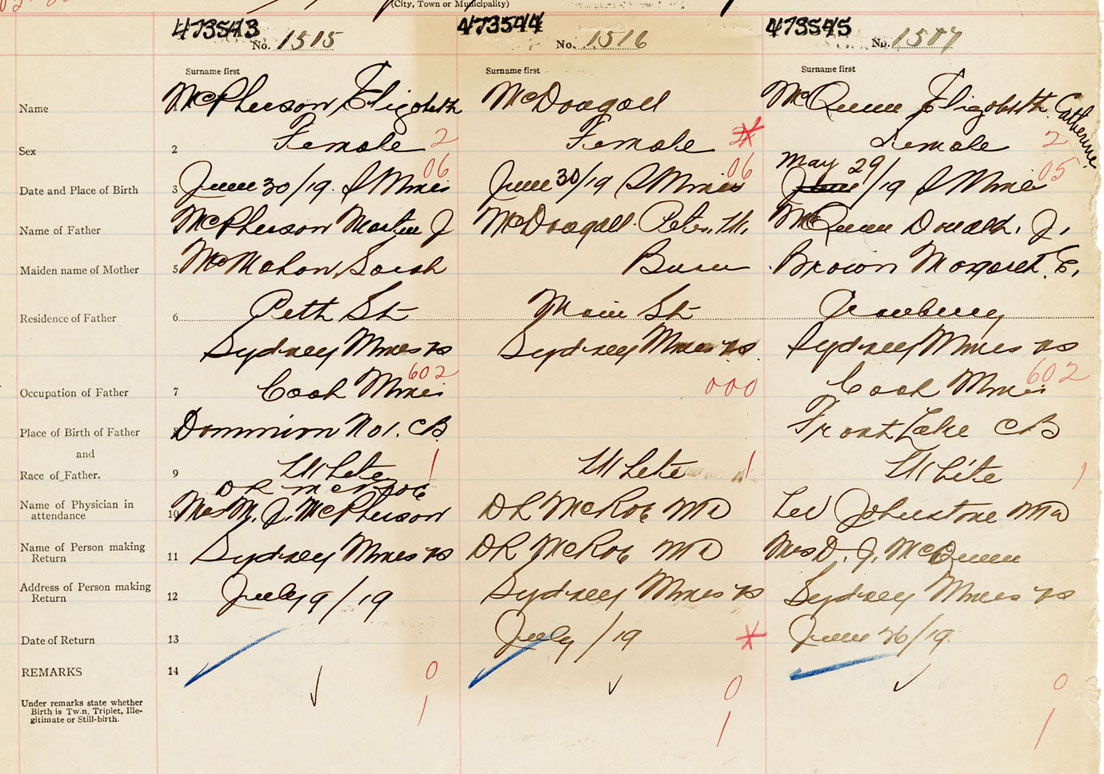 (City, Town or Municipality)
473543 473544 473545
No. 1515 No. 1516 No. 1517
Surname first Surname first Surname first
Name McPherson, Elizabeth McDougall McQueen Elizabeth Catherine
Sex 2 Female 2 Female 2 Female 2
06 06 May 29 05
Date and Place of Birth 3 June 30/19. S Mines June 30/19 S Mines June /19 S Mines
Name of Father McPherson Martin J McDougall Peter. McQueen Donald. J.
Maiden name of Mother 5 McMahon, Sarah Brown Margaret. E.
Residence of Father 6 Peth St Main St Cranberry
Sydney Mines ns Sydney Mines ns. Sydney Mines ns
602 000 602
Occupation of Father 7 Coal Mines Coal Mines
Place of Birth of Father 8 Dominion No 1. CB Front Lake CB
and
Race of Father. 9 White 1 White 1 White 1
DR McRob
Name of Physician in
attendance 10 Mrs M. J. McPherson DR McRob MD Johnstone MD
Name of Person making
Return 11 Sydney Mines ns DR McRob MD Mrs D. J. McQueen
Address of Person making
Return 12 July 9/19 Sydney Mines ns Sydney Mines ns
Date of Return 13 July /19 June 26/19
REMARKS 14 0 0 0
Under remarks state whether
Birth is Twin, Triplet, Ille-
gitimate or Still-birth.
1 1 1